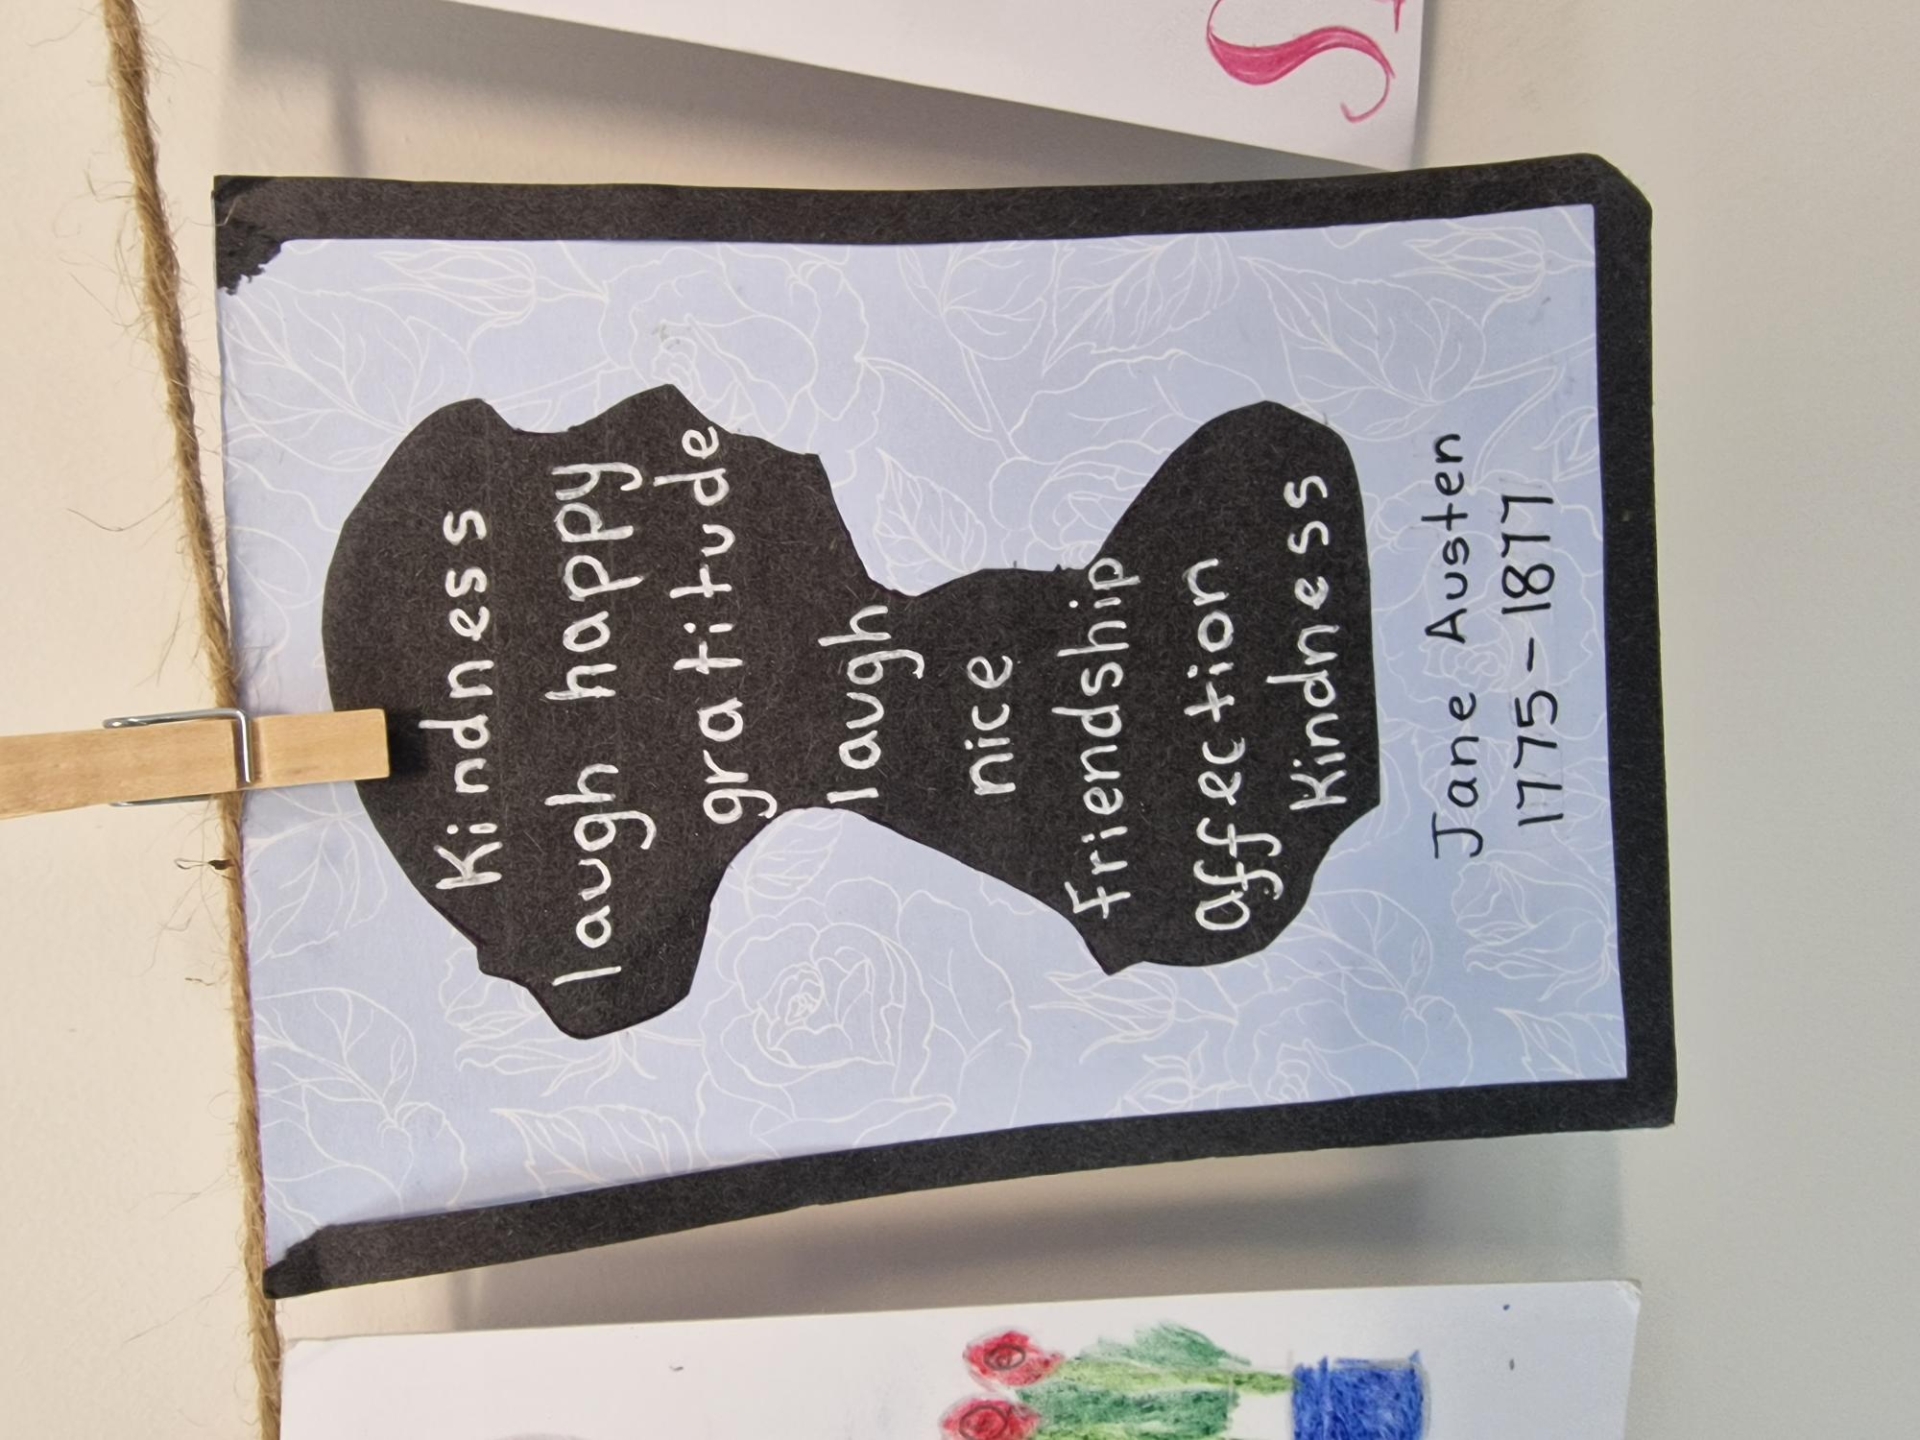 Kindness
laugh happy
gratitude
laugh
nice
friendship
affection
Kindness
Jane Austen
1775-1877